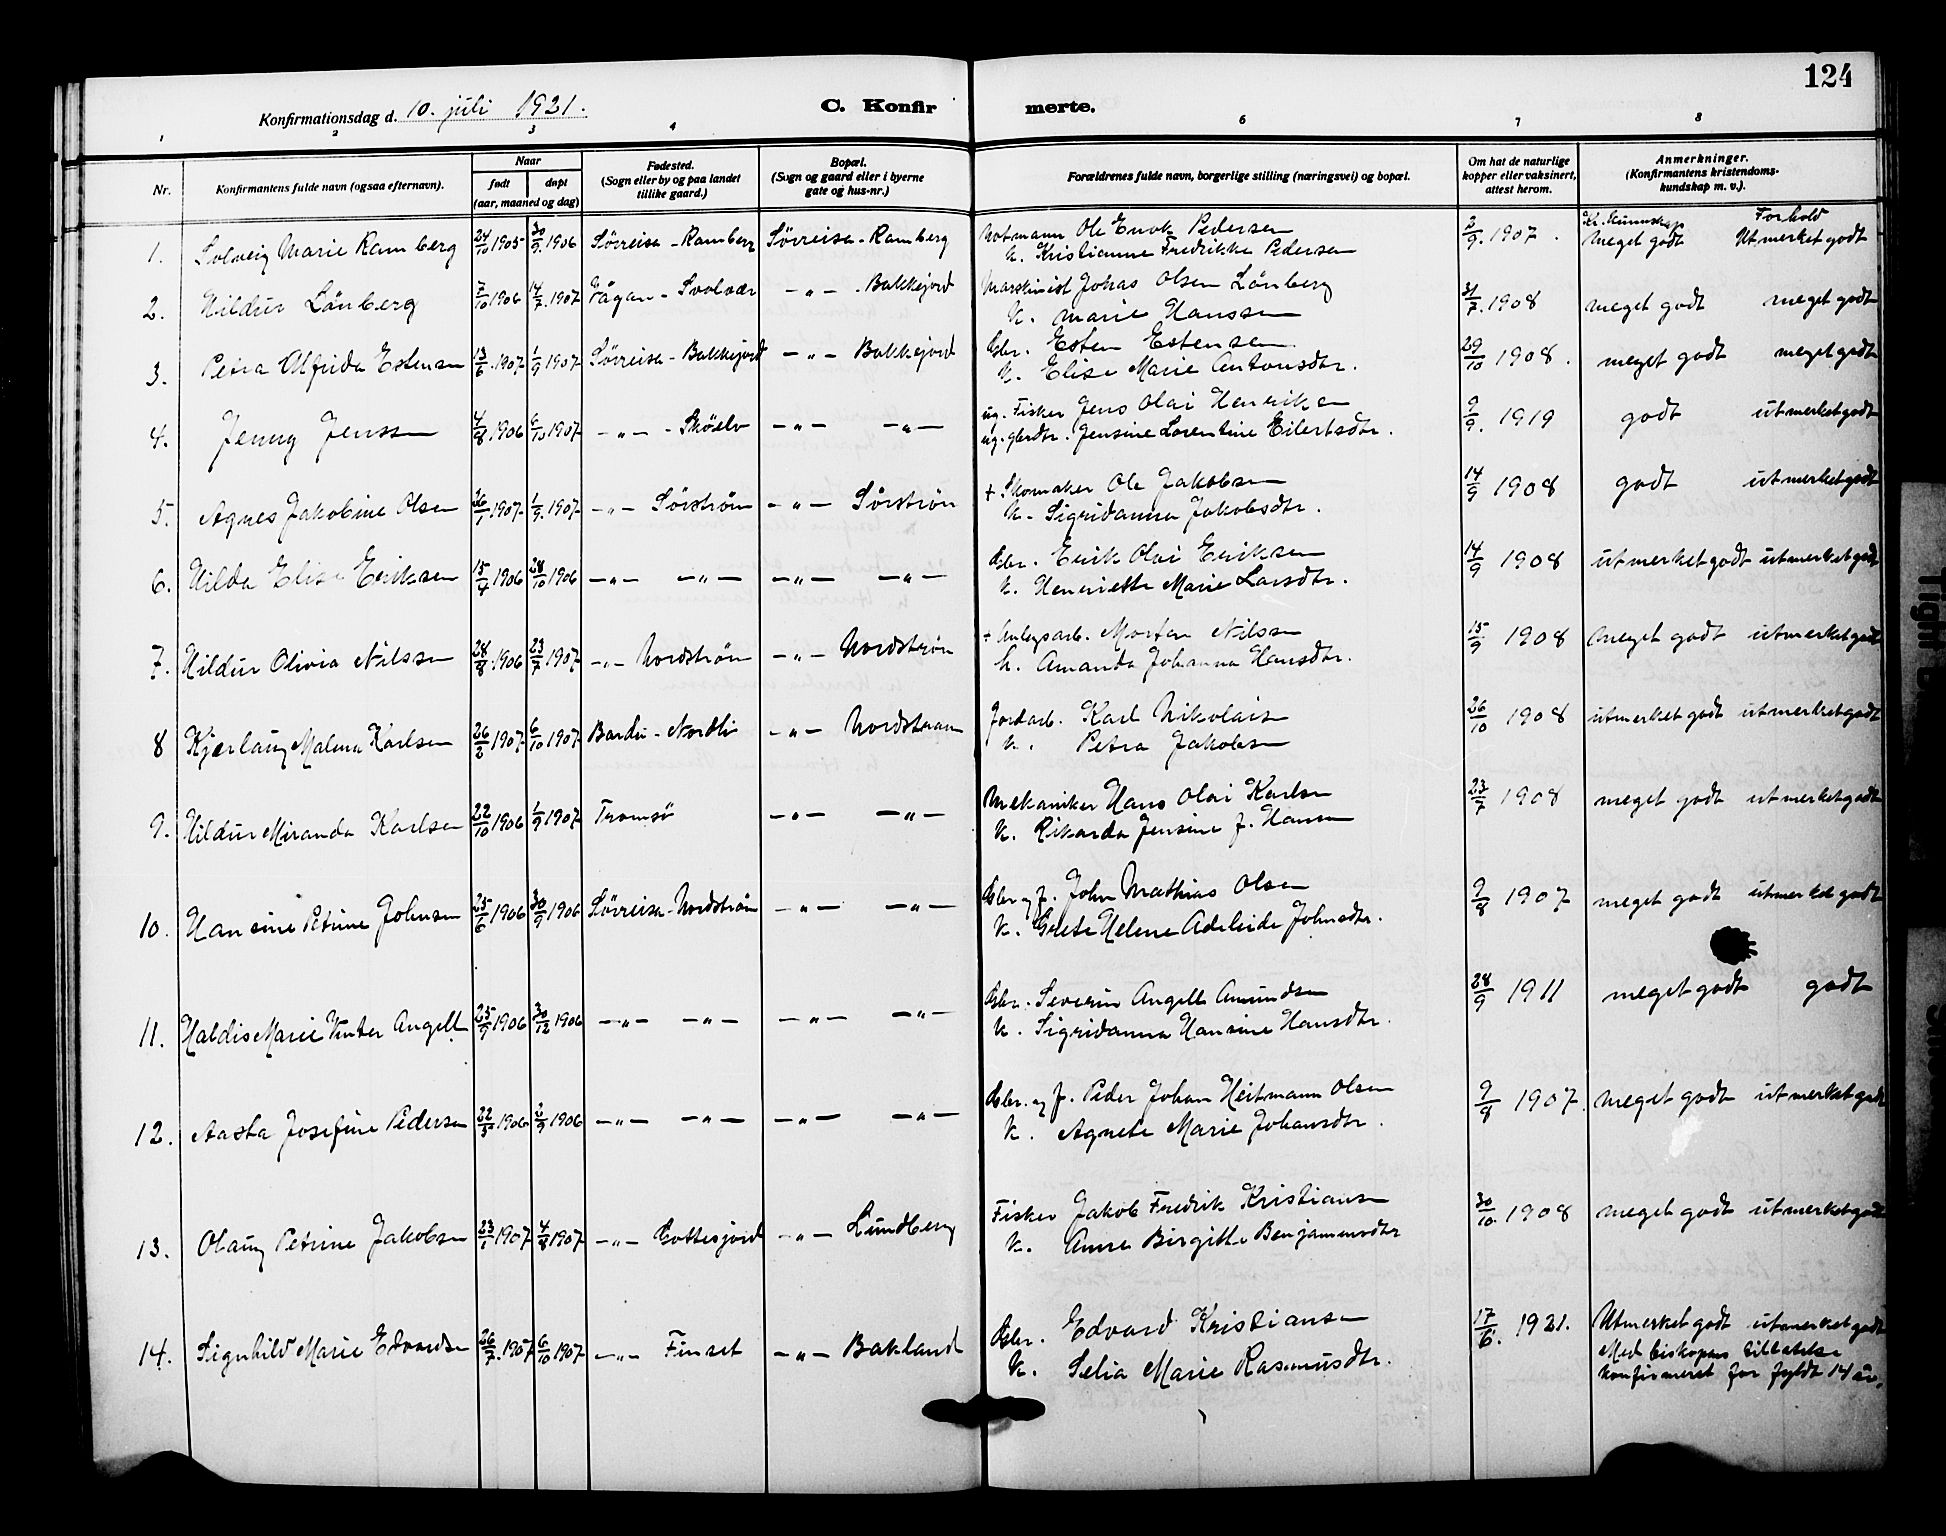 124
Konfirmationsdag d. 10. juli 1921.
C. Konfirmerte.
1 2 3 4 6 7 8
Nr.
Konfirmantens fulde navn (ogsaa efternavn).
Naar
født
døpt
(aar, maaned og dag)
Fødested.
(Sogn eller by og paa landet
tillike gaard.)
Bopæl.
(Sogn og gaard eller i byerne
gate og hus-nr.)
Forældrenes fulde navn, borgerlige stilling (næringsvei) og bopæl.
Om hat de naturlige
kopper eller vaksinert,
attest herom.
Anmerkninger.
(Konfirmantens kristendoms-
kundskap m. v.).
Kr. kunnskap Forhold
1. Solveig Marie Ramberg 24/10 1905 30/9 1906 Sörreisa - Ramberg Sörreisa - Ramberg Notmann Ole Enok Pedersen 2/9. 1907. Meget godt Utmerket godt
k. Kristianne Fredrikke Pedersen
2. Hildur Lönberg 7/10 1906 14/7. 1907 Vågan - Svolvær -„- Bakkejord Marskinist Johas Olsen Lönberg 31/7. 1908 meget godt meget godt
k. Marie Hanssen
3. Petra Alfrida Estensen 13/6. 1907 1/9 1907 Sörreisa - Bakkejord -„- Bakkejord Gbr. Esten Estensen 29/10 1908. meget godt meget godt
k. Elise Marie Antonsdtr.
4. Jenny Jenssen 4/8 1906 6/10 1907 -„- - Sköelv -„- -„- ug. Fisker Jens Olai Henriksen 9/9. 1919 godt utmerket godt
ug. gbrdtr. Jensine Lorentine Eilertsdtr.
5. Agnes Jakobine Olsen 26/1 1907 1/9. 1907 -„- Sörströn -„- Sörströn + Skomaker Ole Jakobsen 14/9 1908 godt utmerket godt
k. Sigridanna Jakobsdtr.
6. Hilda Elise Eriksen 15/4 1906 28/10 1906 -„- -„- -„- -„- Gbr. Erik Olai Eriksen 14/9 1908 utmerket godt utmerket godt
k. Henriette Marie Larsdtr.
7. Hildur Olivia Nilssen 28/8 1906 23/7 1907 -„- Nordströn -„- Nordströn + Anlegsarb. Morten Nilssen 15/9 1908 Meget godt utmerket godt
k. Amanda Johanna Hansdtr.
8 Kjærlaug Malena Karlsen 26/2 1907 6/10 1907 Bardu - Nordli -„- Nordstraum Jordarb. Karl Nikolaisen 26/10 1908 utmerket godt utmerket godt
k. Petra Jakobsen
9. Hildur Miranda Karlsen 22/10 1906 1/9 1907 Tromsö -„- -„- Mekaniker Hans Olai Karlsen 23/7 1908 meget godt utmerket godt
k. Rikarda Jensine J. Hansen
10. Hansine Petrine Johnsen 25/6 1906 30/9 1906 Sörreisa - Nordströn -„- -„- Gbr. og f. John Mathias Olsen 9/8 1907 meget godt utmerket godt
k. Grete Helene Adeleide Johnsdtr.
11. Haldis Marie Vinter Angell 25/9 1906 30/12 1906 -„- -„- -„- -„- Gbr. Severin Angell Amundsen 28/9 1911 meget godt godt
k. Sigridanna Hansine Hansdtr.
12. Aasta Josefine Pedersen 22/5 1906 2/9 1906 -„- -„- -„- -„- Gbr. og f. Peder Johan Heitmann Olsen 9/8 1907. Meget godt utmerket godt
k. Agnete Marie Johansdtr.
13. Olaug Petrine Jakobsen 23/1 1907 4/8 1907 -„- Gottesjord -„- Lundberg Fisker Jakob Fredrik Kristiansen 30/10. 1908 meget godt utmerket godt
k. Anna Birgitte Benjaminsdtr
14. Signhild Marie Edvardsen 26/7. 1907 6/10 1907 -„- Finset -„- Bakland Gbr. Edvard Kristiansen 17/6. 1921. Utmerket godt utmerket godt
k. Selia Marie Rasmusdtr. Med biskopens tillatelse
konfirmeret før fyldt 14 år.